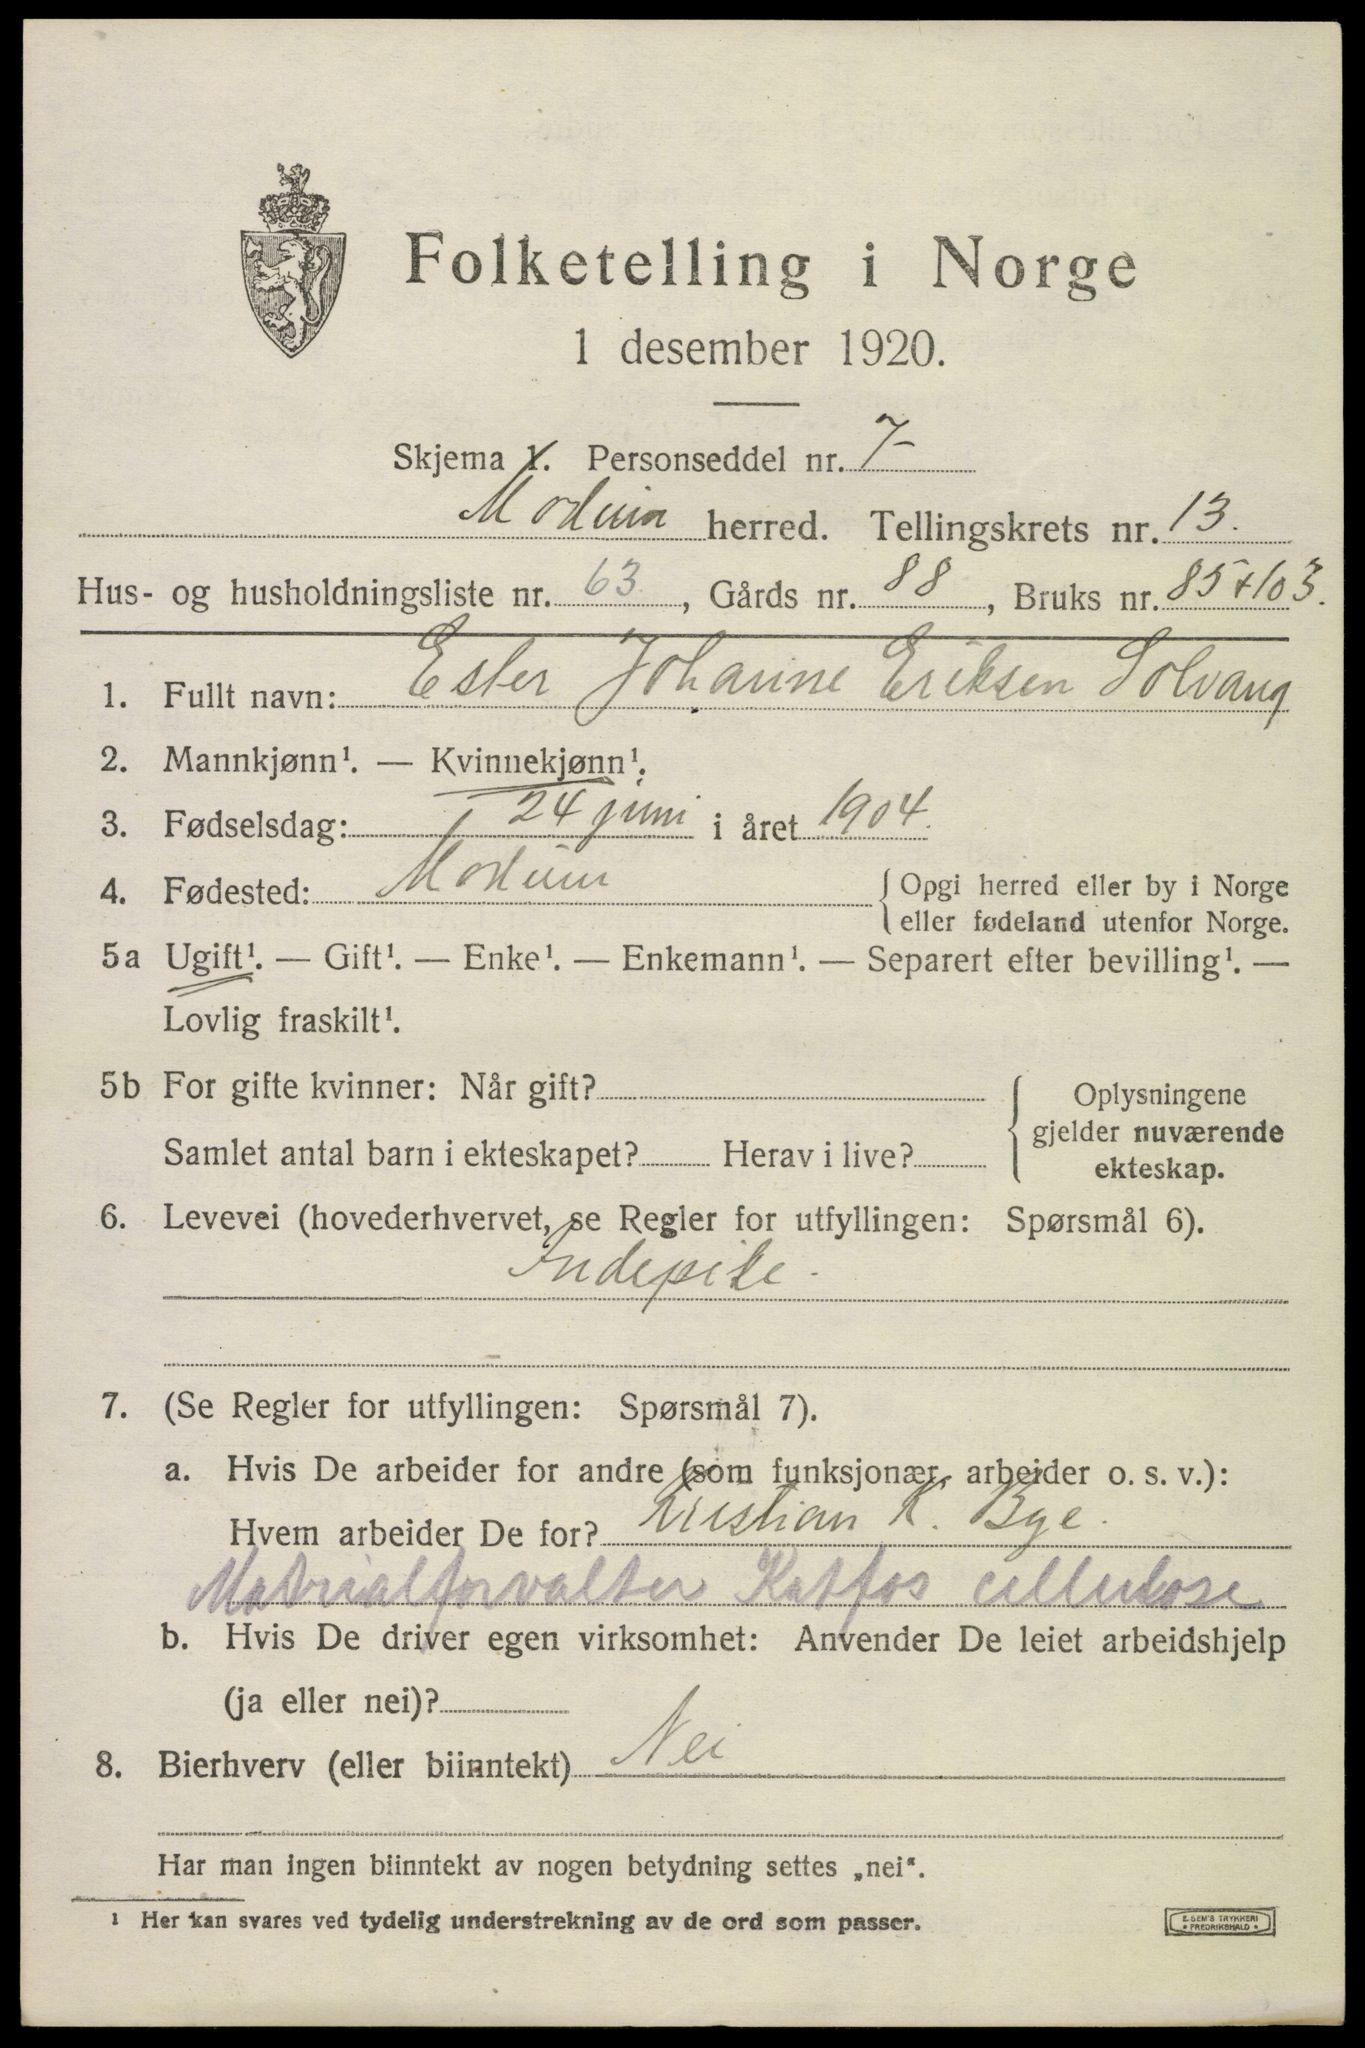 Folketelling i Norge
1 desember 1920.
Skjema 1. Personseddel nr. 7-
Modum herred. Tellingskrets nr. 13.
Hus- og husholdningsliste nr. 63, Gårds nr. 88, Bruks nr. 85+103.
1. Fullt navn: Ester Johanne Eriksen Solvang
2. Mannkjønn¹. — Kvinnekjønn¹.
3. Fødselsdag: 24 juni i året 1904.
4. Fødested: Modum { Opgi herred eller by i Norge
eller fødeland utenfor Norge.
5a Ugift¹. — Gift¹. — Enke¹. — Enkemann¹. — Separert efter bevilling¹. —
Lovlig fraskilt¹.
5b For gifte kvinner: Når gift? { Oplysningene
gjelder nuværende
Samlet antal barn i ekteskapet? Herav i live?
ekteskap.
6. Levevei (hovederhvervet, se Regler for utfyllingen: Spørsmål 6).
Indepike.
7. (Se Regler for utfyllingen: Spørsmål 7).
a. Hvis De arbeider for andre (som funksjonær, arbeider o. s. v.):
Hvem arbeider De for? Kristian K. Bye.
Matrialforvalter Katfos cellulose
b. Hvis De driver egen virksomhet: Anvender De leiet arbeidshjelp
(ja eller nei)?
8. Bierhverv (eller biinntekt) Nei
Har man ingen biinntekt av nogen betydning settes „nei“.
¹ Her kan svares ved tydelig understrekning av de ord som passer.
E. SEM'S TRYKKERI
* FREDRIKSHALD *